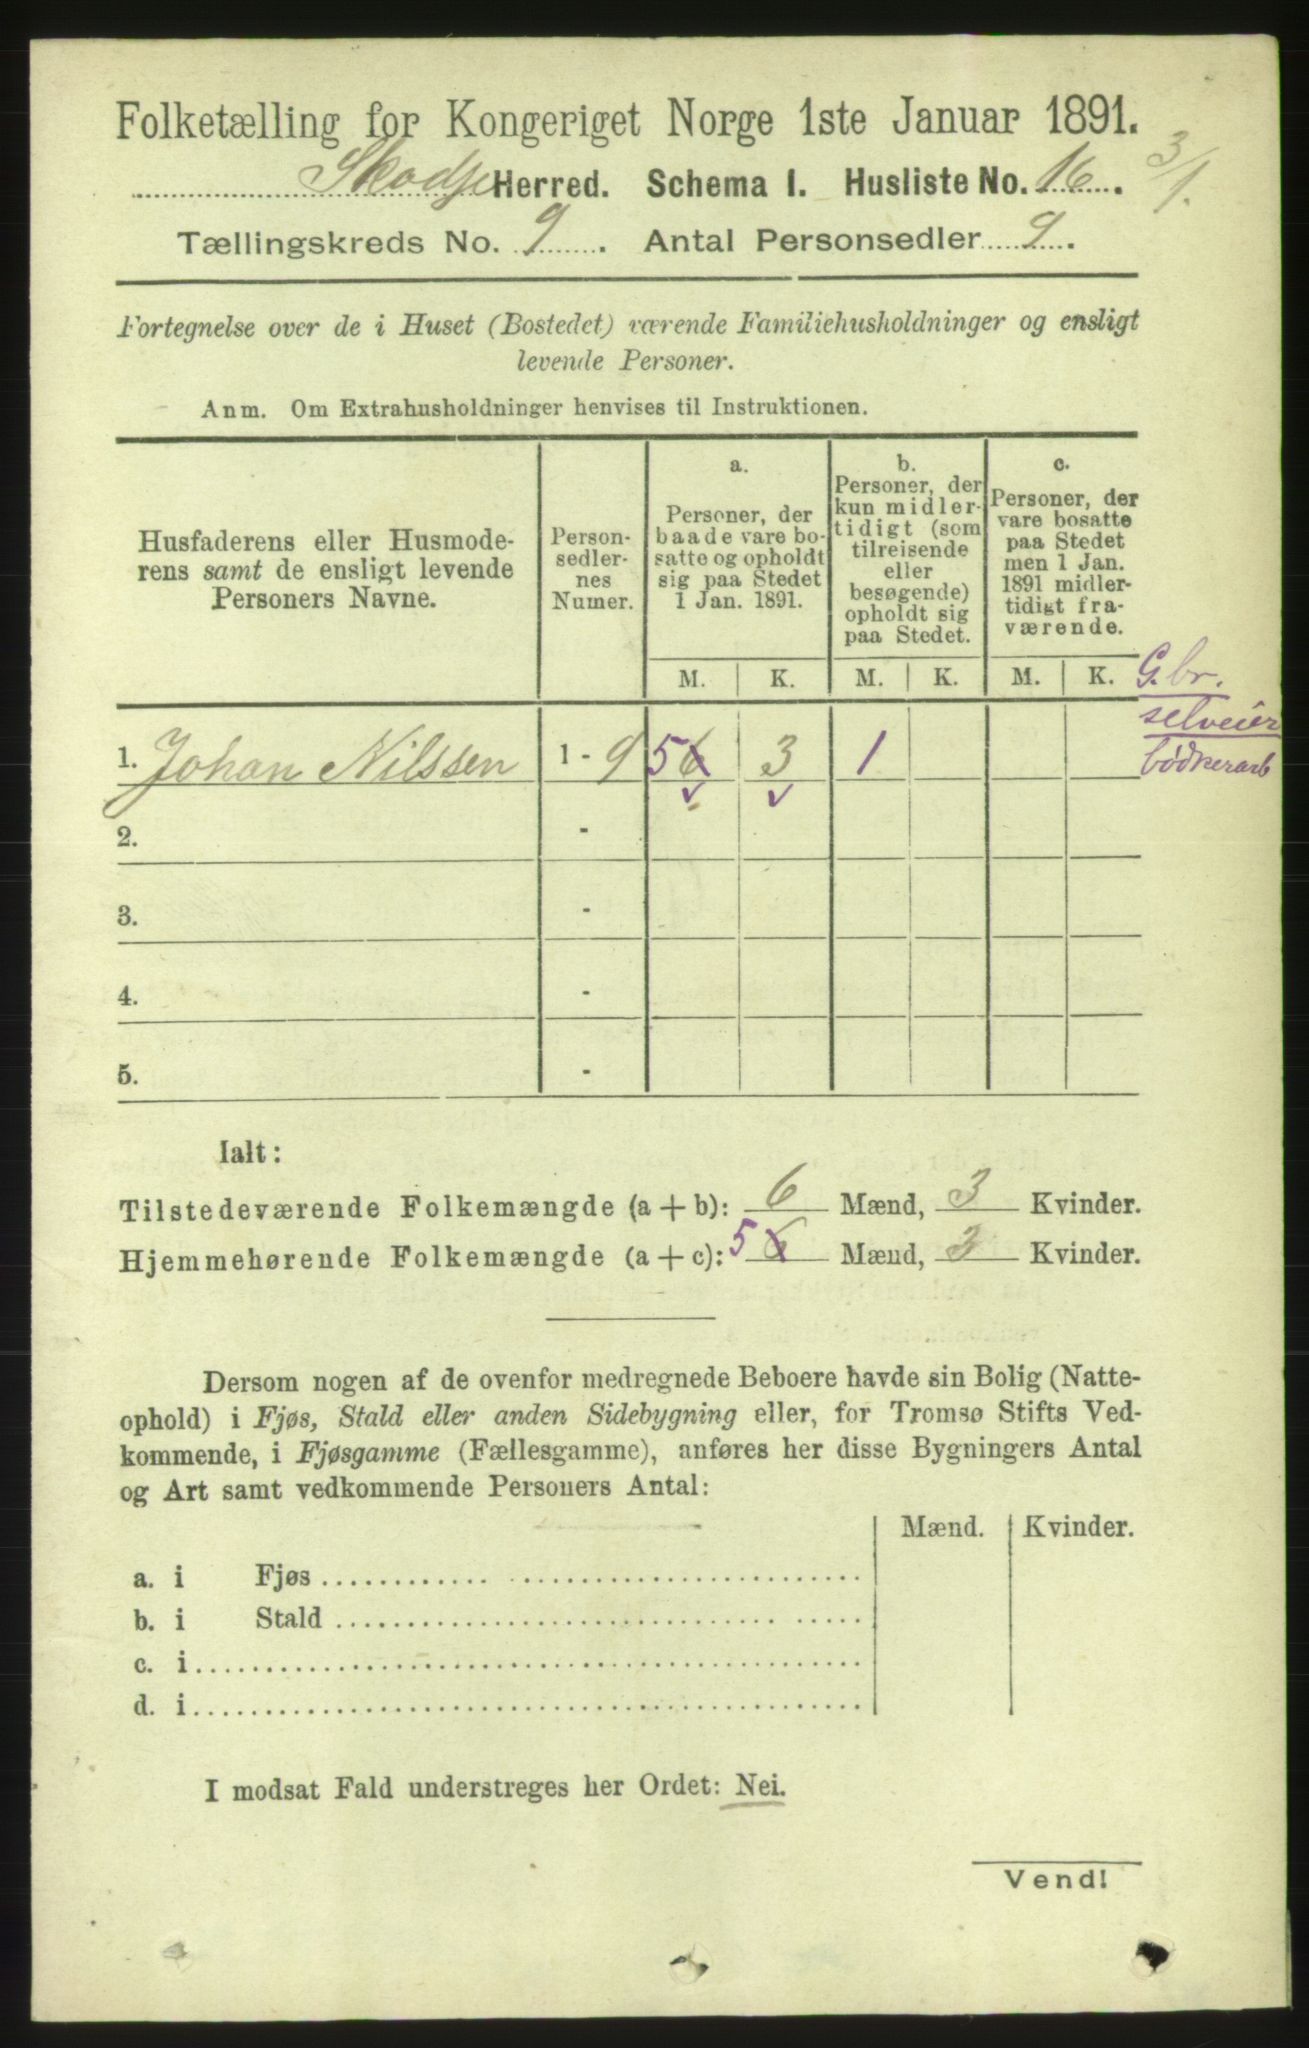 Folketælling for Kongeriget Norge 1ste Januar 1891.
Skodje Herred. Schema I. Husliste No. 16. 3/1.
Tællingskreds No. 9. Antal Personsedler 9.
Fortegnelse over de i Huset (Bostedet) værende Familiehusholdninger og ensligt
levende Personer.
Anm. Om Extrahusholdninger henvises til Instruktionen.
Husfaderens eller Husmode-
rens samt de ensligt levende
Personers Navne.
Person-
sedler-
nes
Numer.
a.
Personer, der
baade vare bo-
satte og opholdt
sig paa Stedet
1 Jan. 1891.
b.
Personer, der
kun midler-
tidigt (som
tilreisende
eller
besøgende)
opholdt sig
paa Stedet.
c.
Personer, der
vare bosatte
paa Stedet
men 1 Jan.
1891 midler-
tidigt fra-
værende.
M. K. M. K. M. K.
G.br.
selveier
bødkerarb
1. Johan Nilssen 1 - 9 5 6 3 1
2. -
3. -
4. -
5. -
Ialt:
Tilstedeværende Folkemængde (a + b): 6 Mænd, 3 Kvinder.
Hjemmehørende Folkemængde (a + c): 5 6 Mænd, 3 Kvinder.
Dersom nogen af de ovenfor medregnede Beboere havde sin Bolig (Natte-
ophold) i Fjøs, Stald eller anden Sidebygning eller, for Tromsø Stifts Ved-
kommende, i Fjøsgamme (Fællesgamme), anføres her disse Bygningers Antal
og Art samt vedkommende Personers Antal:
Mænd. Kvinder.
a. i Fjøs
b. i Stald
c. i
d. i
I modsat Fald understreges her Ordet: Nei.
Vend!